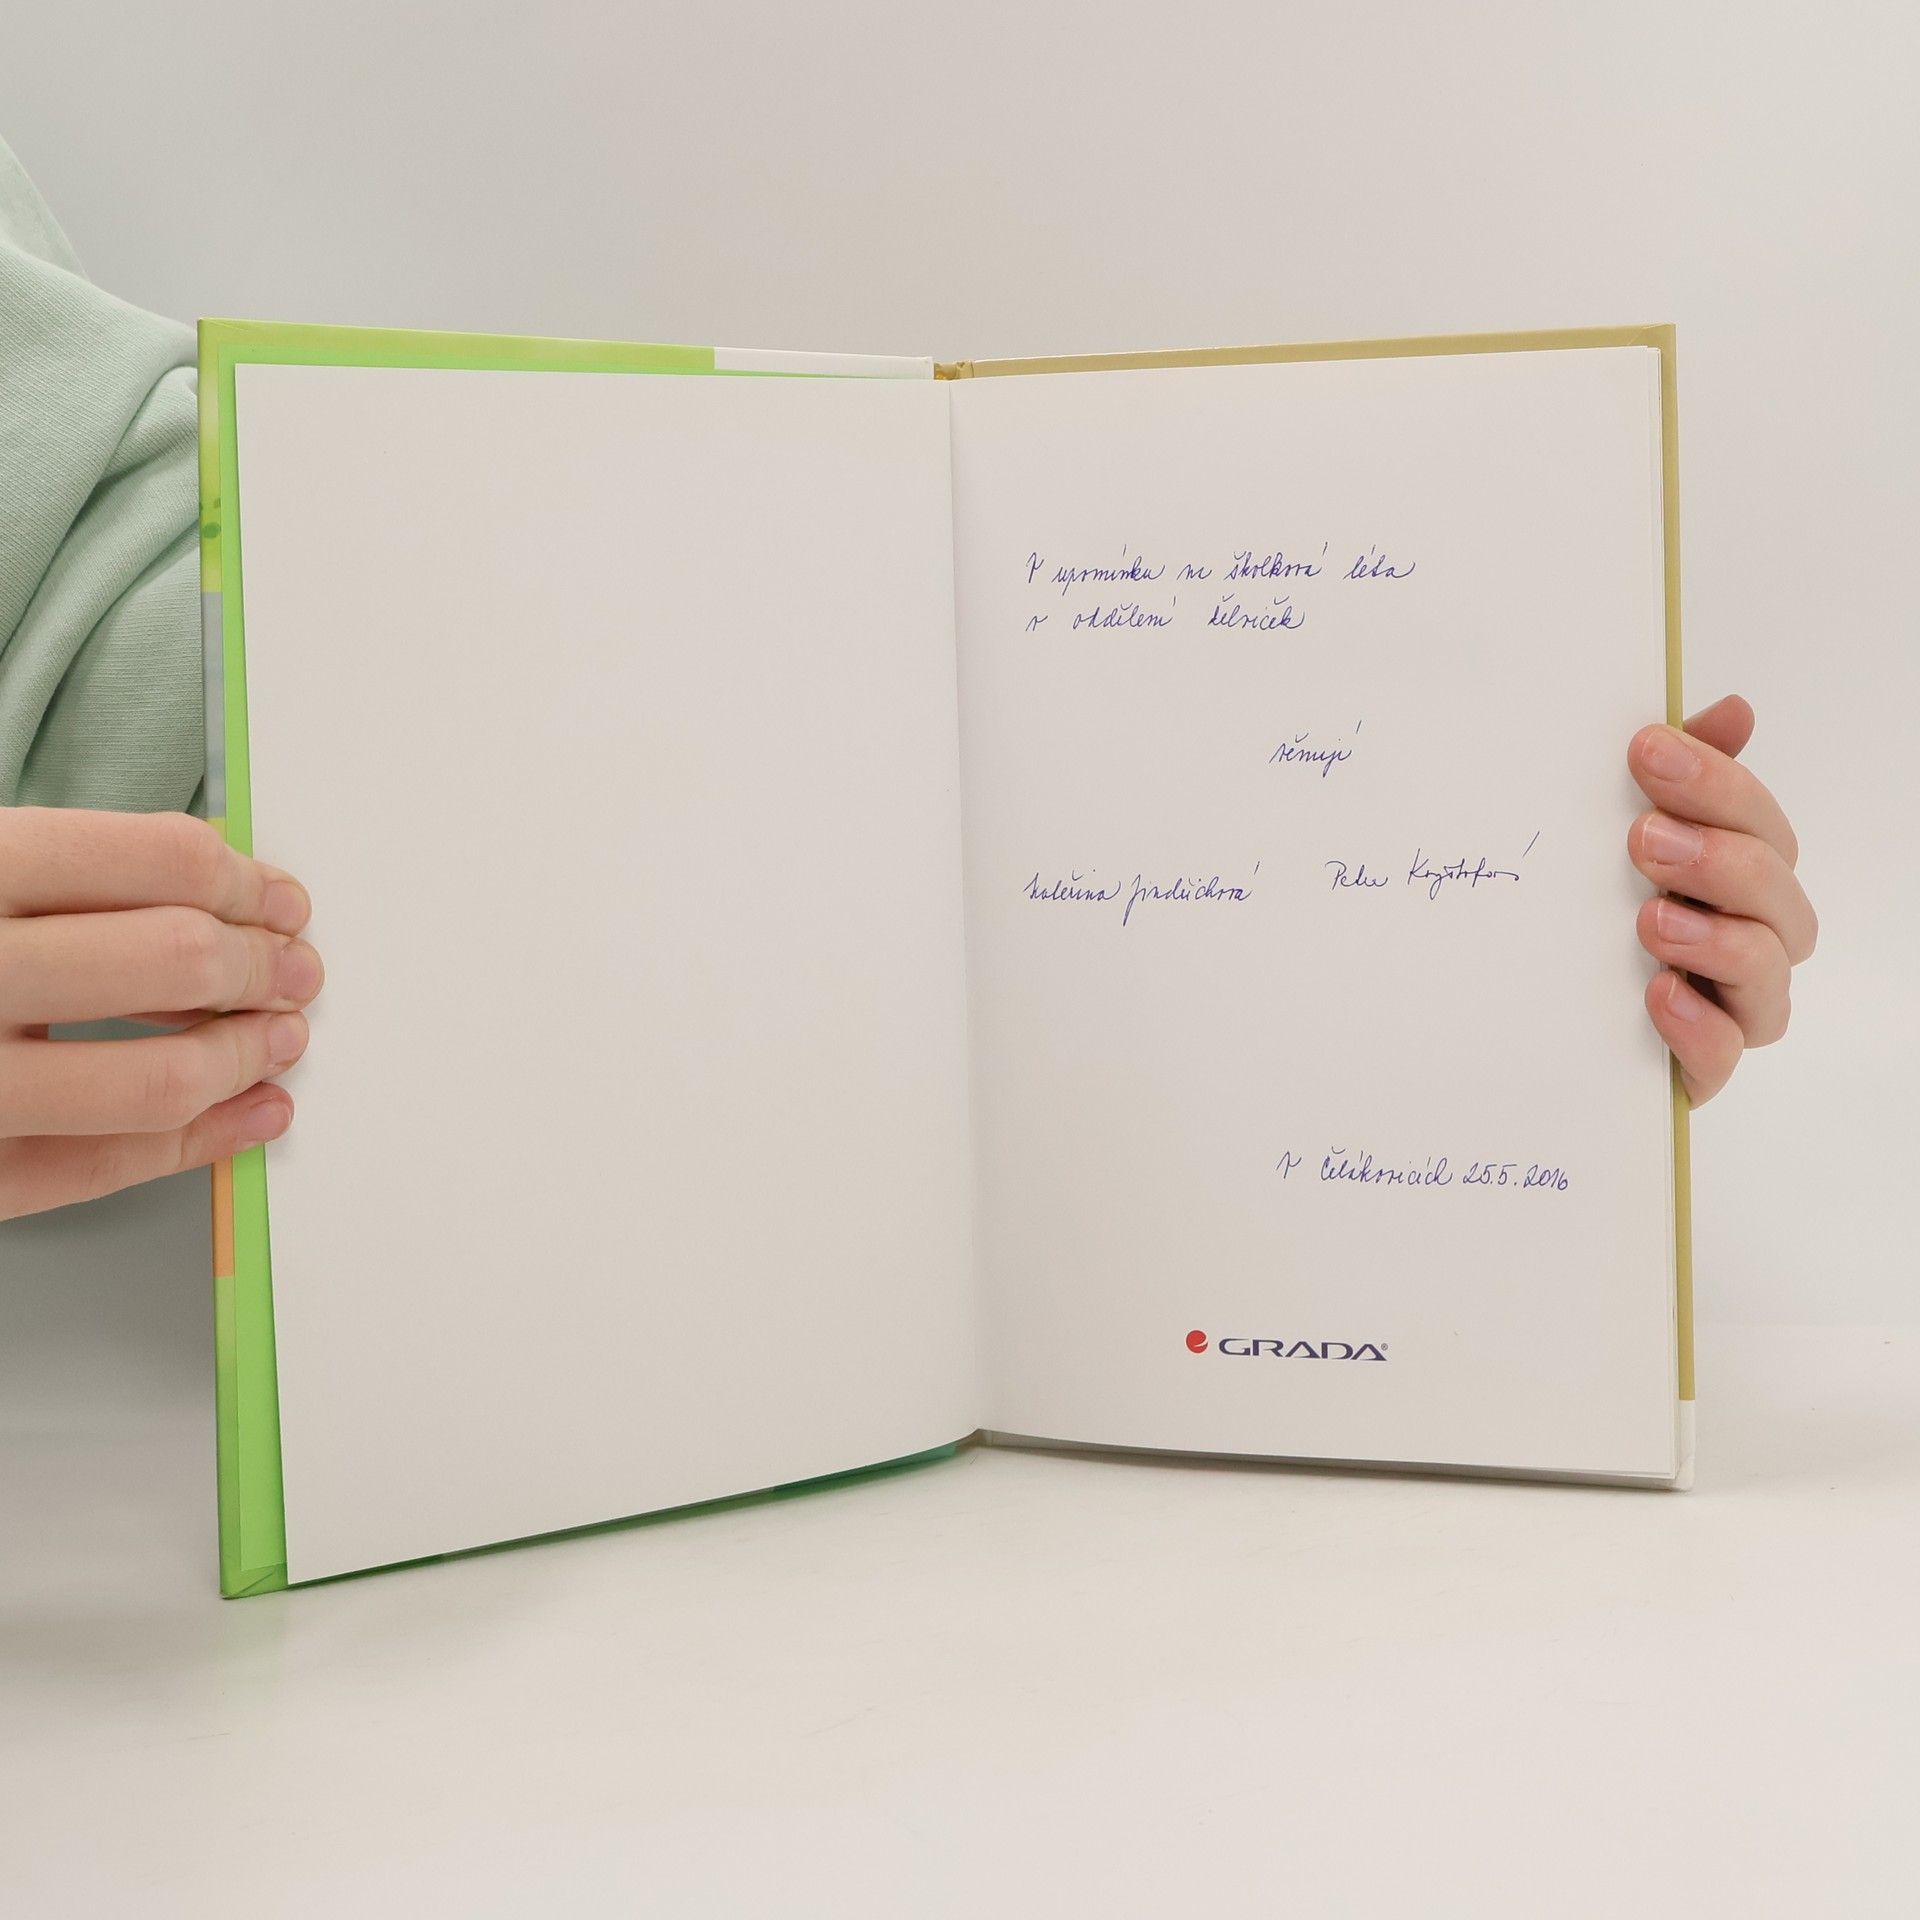 V upomínku na školková léta
v oddělení želviček
věnují
Kateřina Jindřichová Petra Kryštofová
V Čelákovicích 25.5.2016
GRADA®